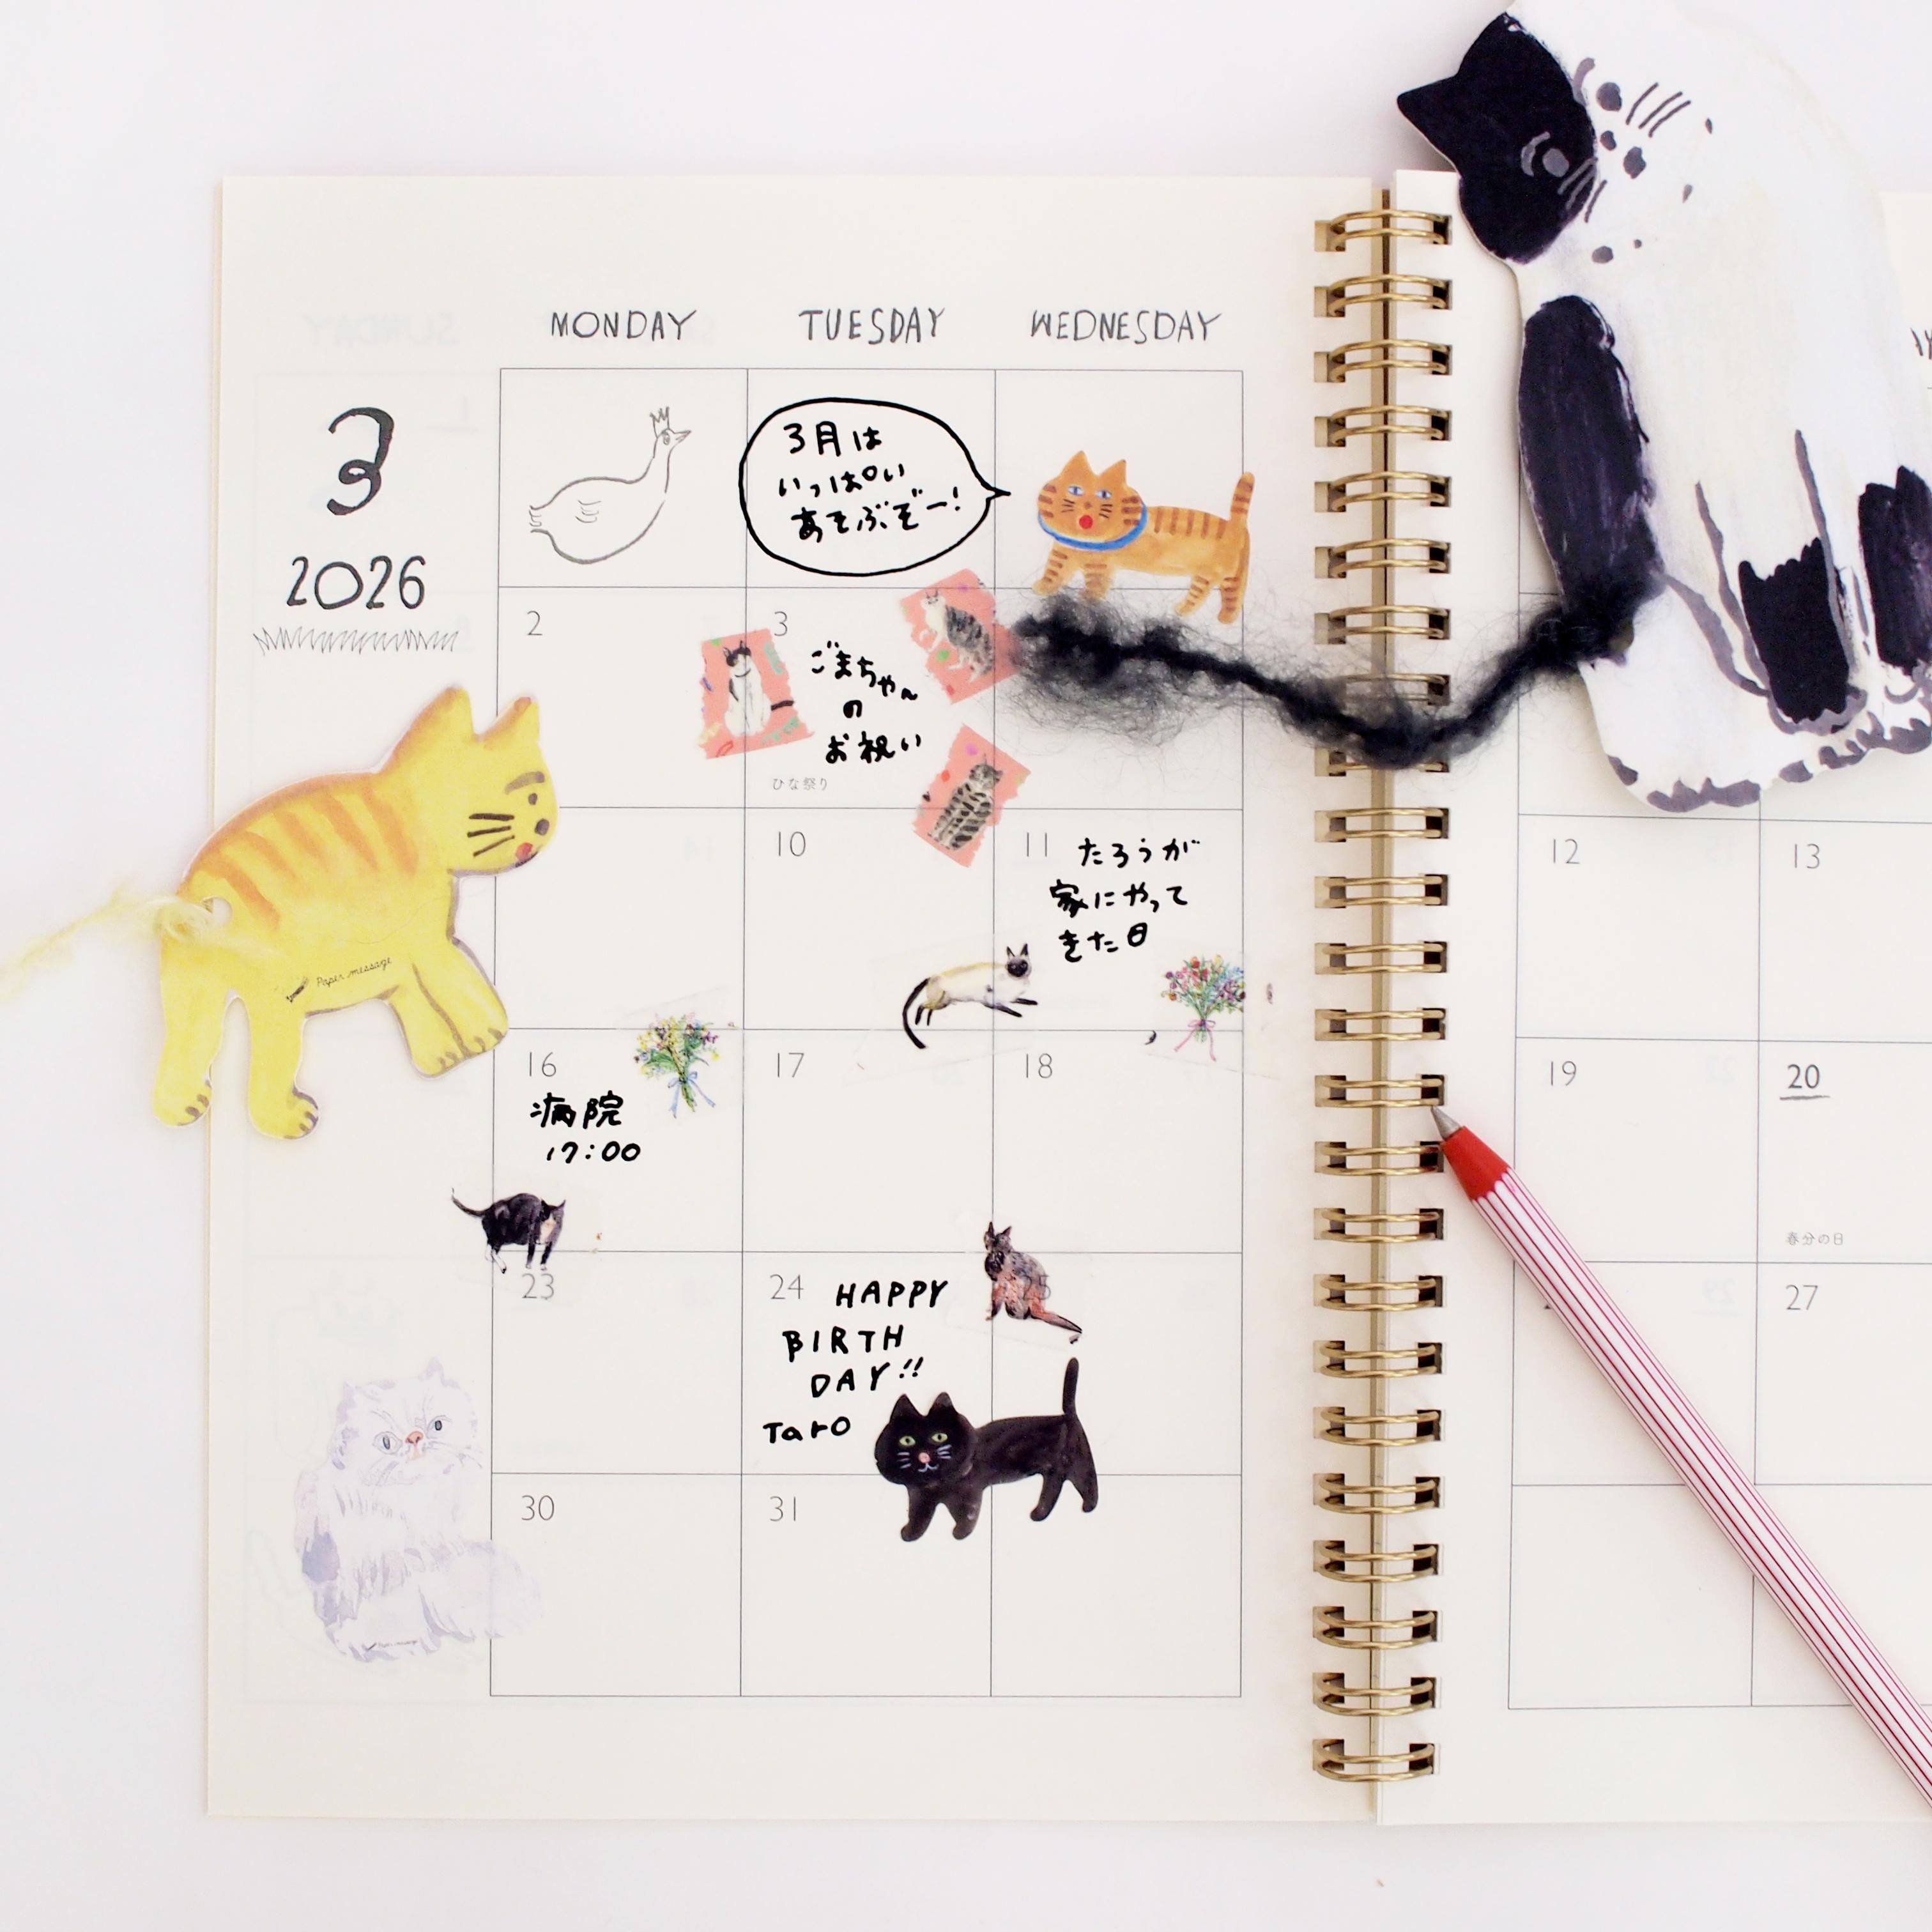 MONDAY TUESDAY WEDNESDAY
3
2026
3月は
いっぱい
あそぶぞー!
2
3
ごまちゃん
の
お祝い
ひな祭り
10
11
たろうが
家にやって
きた日
12
13
Paper message
16
病院
17:00
17
18
19
20
春分の日
23
24
HAPPY
BIRTH
DAY!!
Taro
25
27
30
31